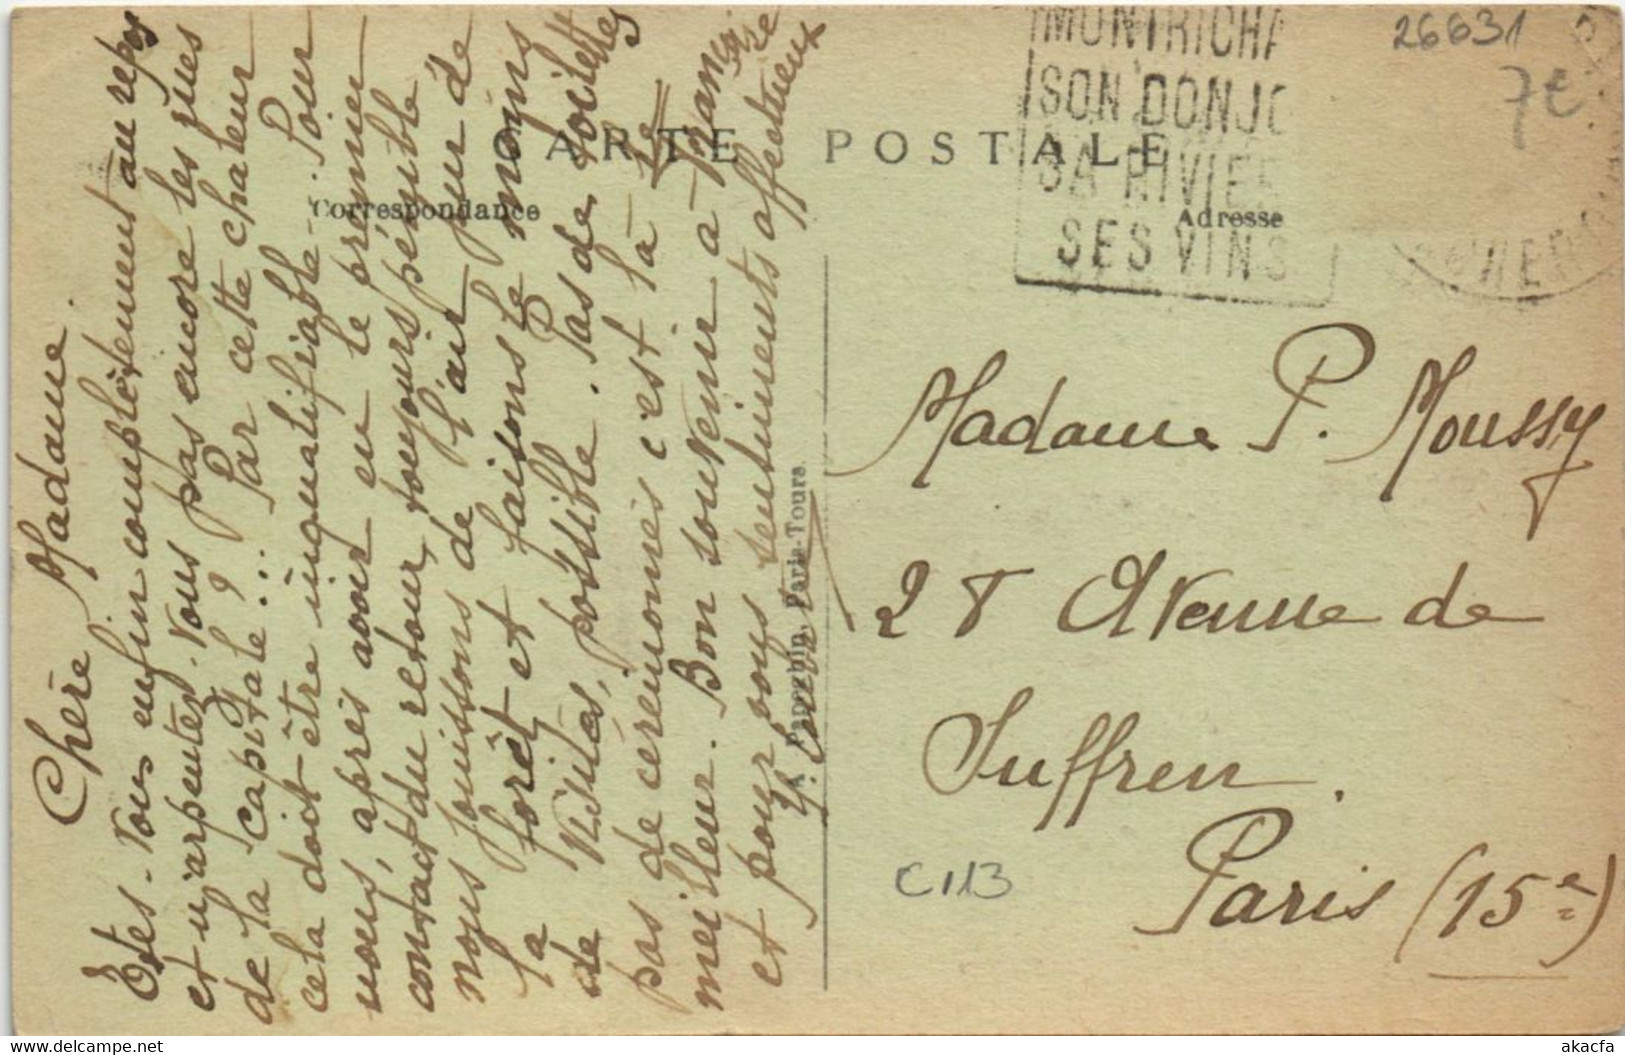 CARTE POSTALE
Correspondance
Adresse
MONTRICHA
SON DONJO
SA RIVIE
SES VINS
26631
7€
Chère Madame.
Êtes-vous enfin complètement au repos
et n'arpentez-vous pas encore les rues
de la capitale ? Par cette chaleur
cela doit-être inqualifiable. Pour
nous, après avoir eu le premier
contact du retour, toujours pénible
nous jouissons de l'air pur de
la forêt et faisons le moins
de visites possible. Pas de toilettes
pas de cérémonies c'est là le
meilleur. Bon souvenir à
et pour vous sentiments affectueux
Papeghin, Paris-Tours.
Madame P. Moussy
28 Avenue de
Suffren.
Paris (15e)
C113
akacfa